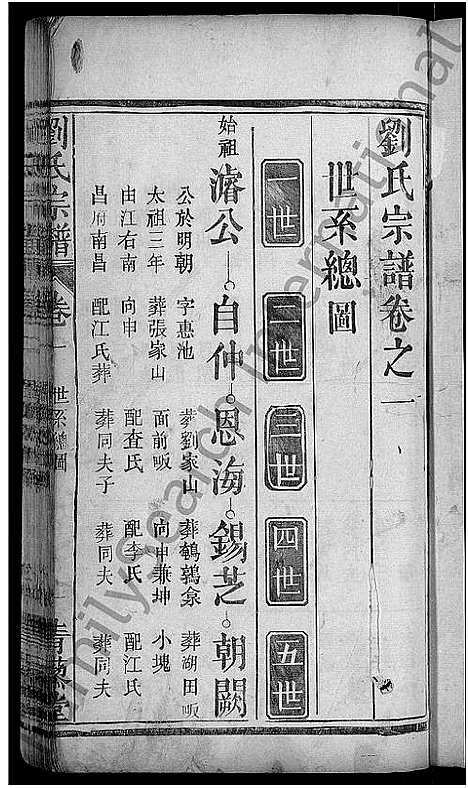 劉氏宗譜卷之一
世系總圖
一世 二世 三世 四世 五世
始祖 濬公 自仲 恩海 錫芝 朝闕
公於明朝 字惠池 葬劉家山 葬鵪鶉 葬湖田畈
太祖三年 葬張家山 面前畈 向申兼坤 小塊
由江右南 向申 配查氏 配李氏 配江氏
昌府南昌 配江氏葬 葬同夫子 葬同夫 葬同夫
劉氏宗譜 卷一 世系總圖 堂
FamilySearch International